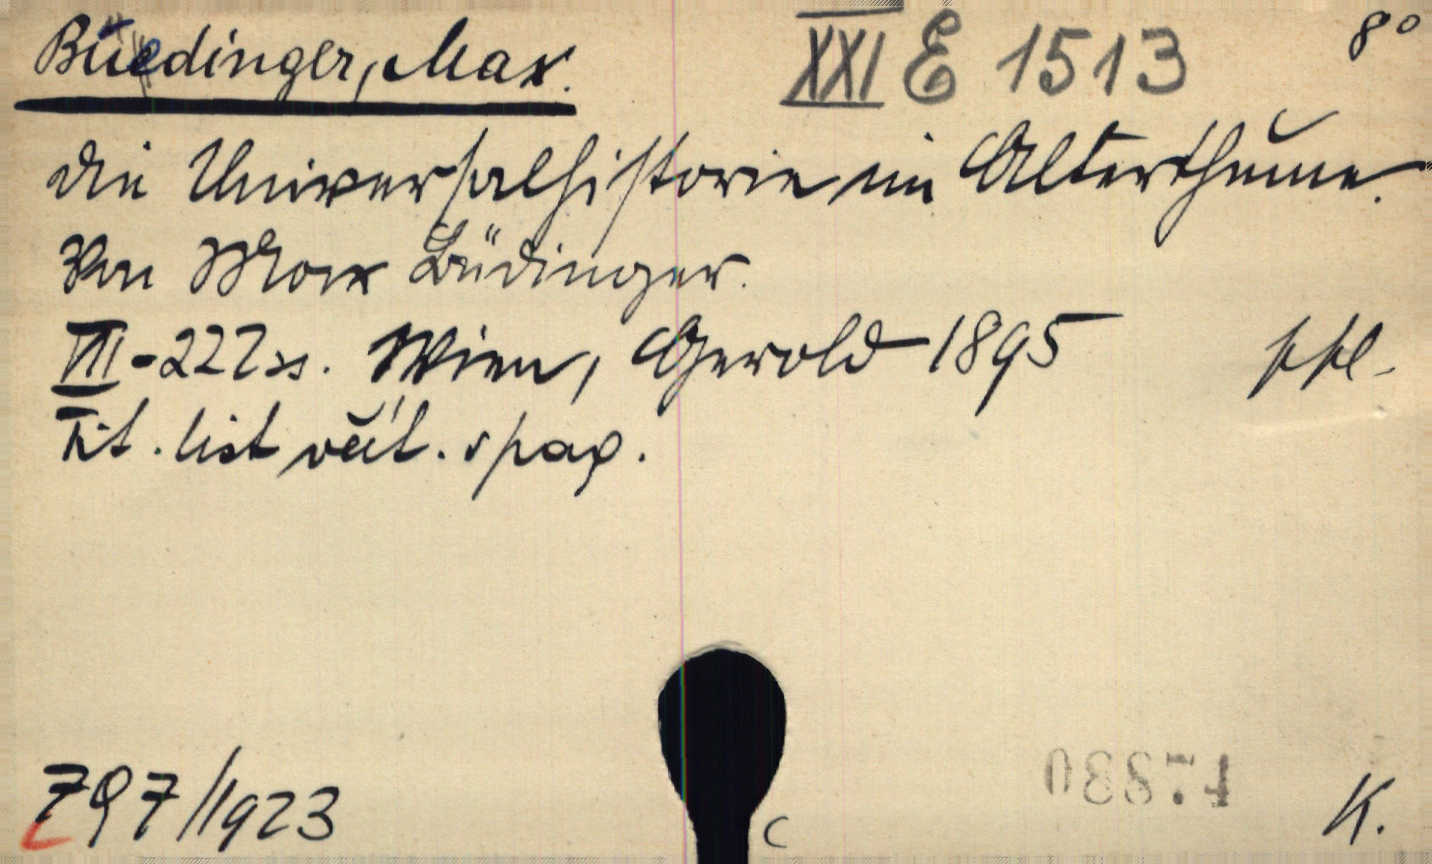 Büedinger, Max. XXI E 1513 8°
Die Universalhistorie im Alterthume.
Von Max Büdinger.
VII-222 ss. Wien, Gerold 1895 ppl.
Tit. list věil. v pag.
797/1923 C K.